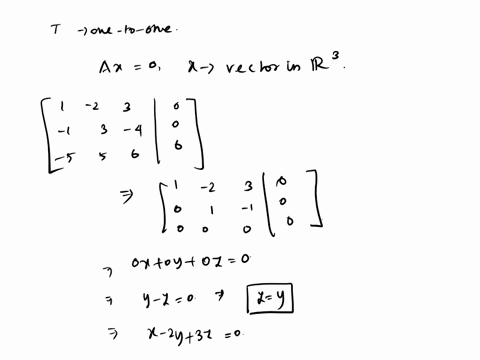 T → one-to-one.
Ax = 0, x → vector in ℝ³.
1 -2 3 | 0
-1 3 -4 | 0
-5 5 6 | 0
⇒ 1 -2 3 | 0
0 1 -1 | 0
0 0 0 | 0
⇒ 0x+0y+0z=0
⇒ y-z=0. ⇒ z=y
⇒ x-2y+3z=0.